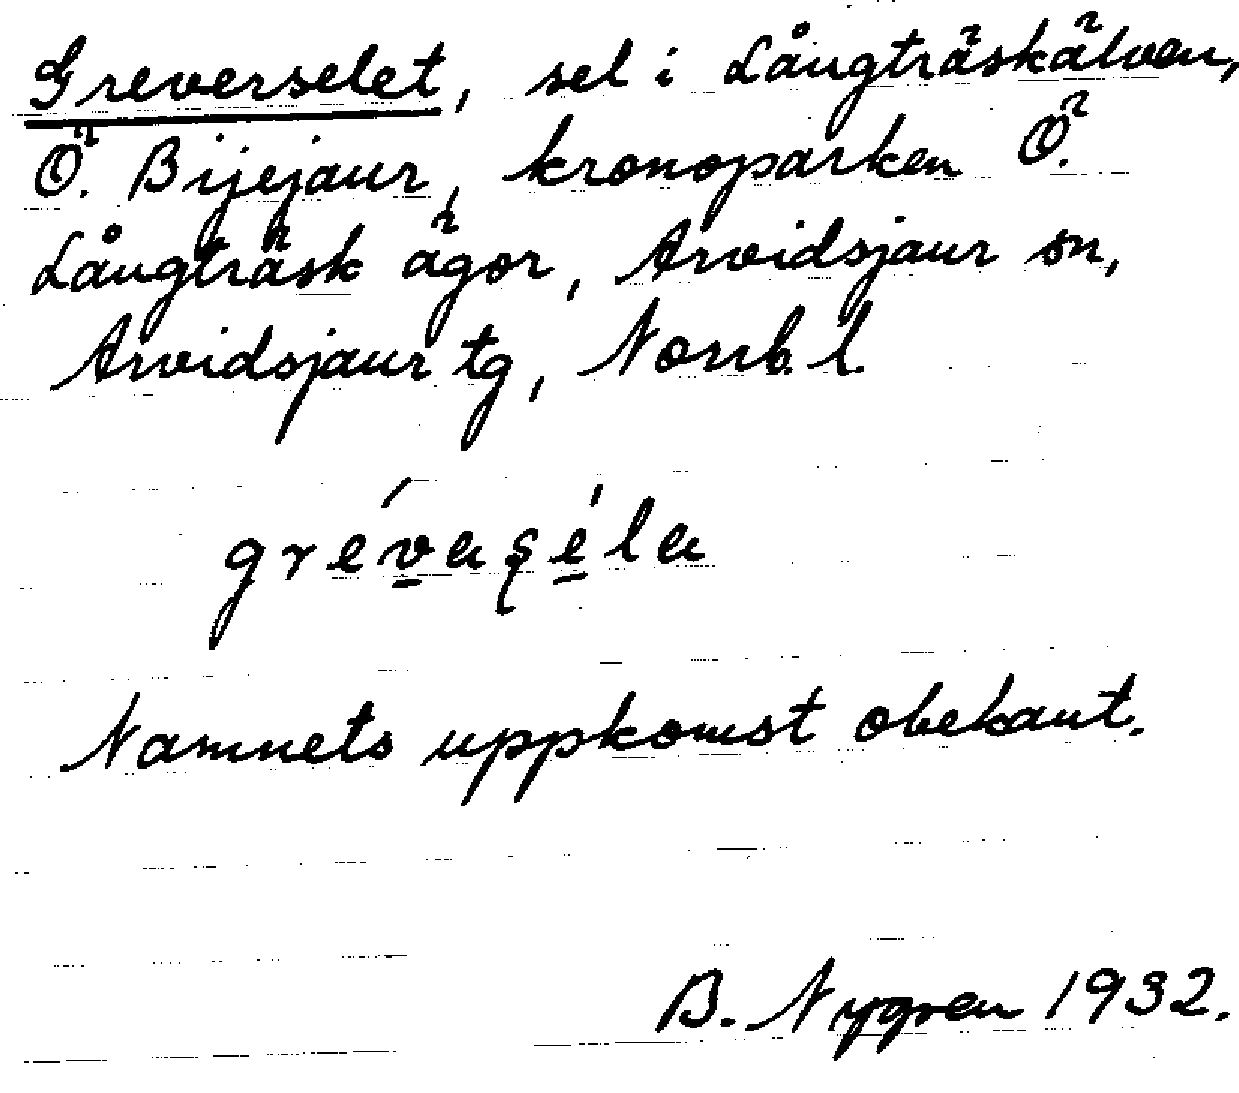 Greverselet, sel i Långträskälven,
Ö. Bijejaur, kronoparken Ö.
Långträsk ägor, Arvidsjaur sn,
Arvidsjaur tg, Norrb. l.
grévaséla
Namnets uppkomst obekant.
B. Nygren 1932.